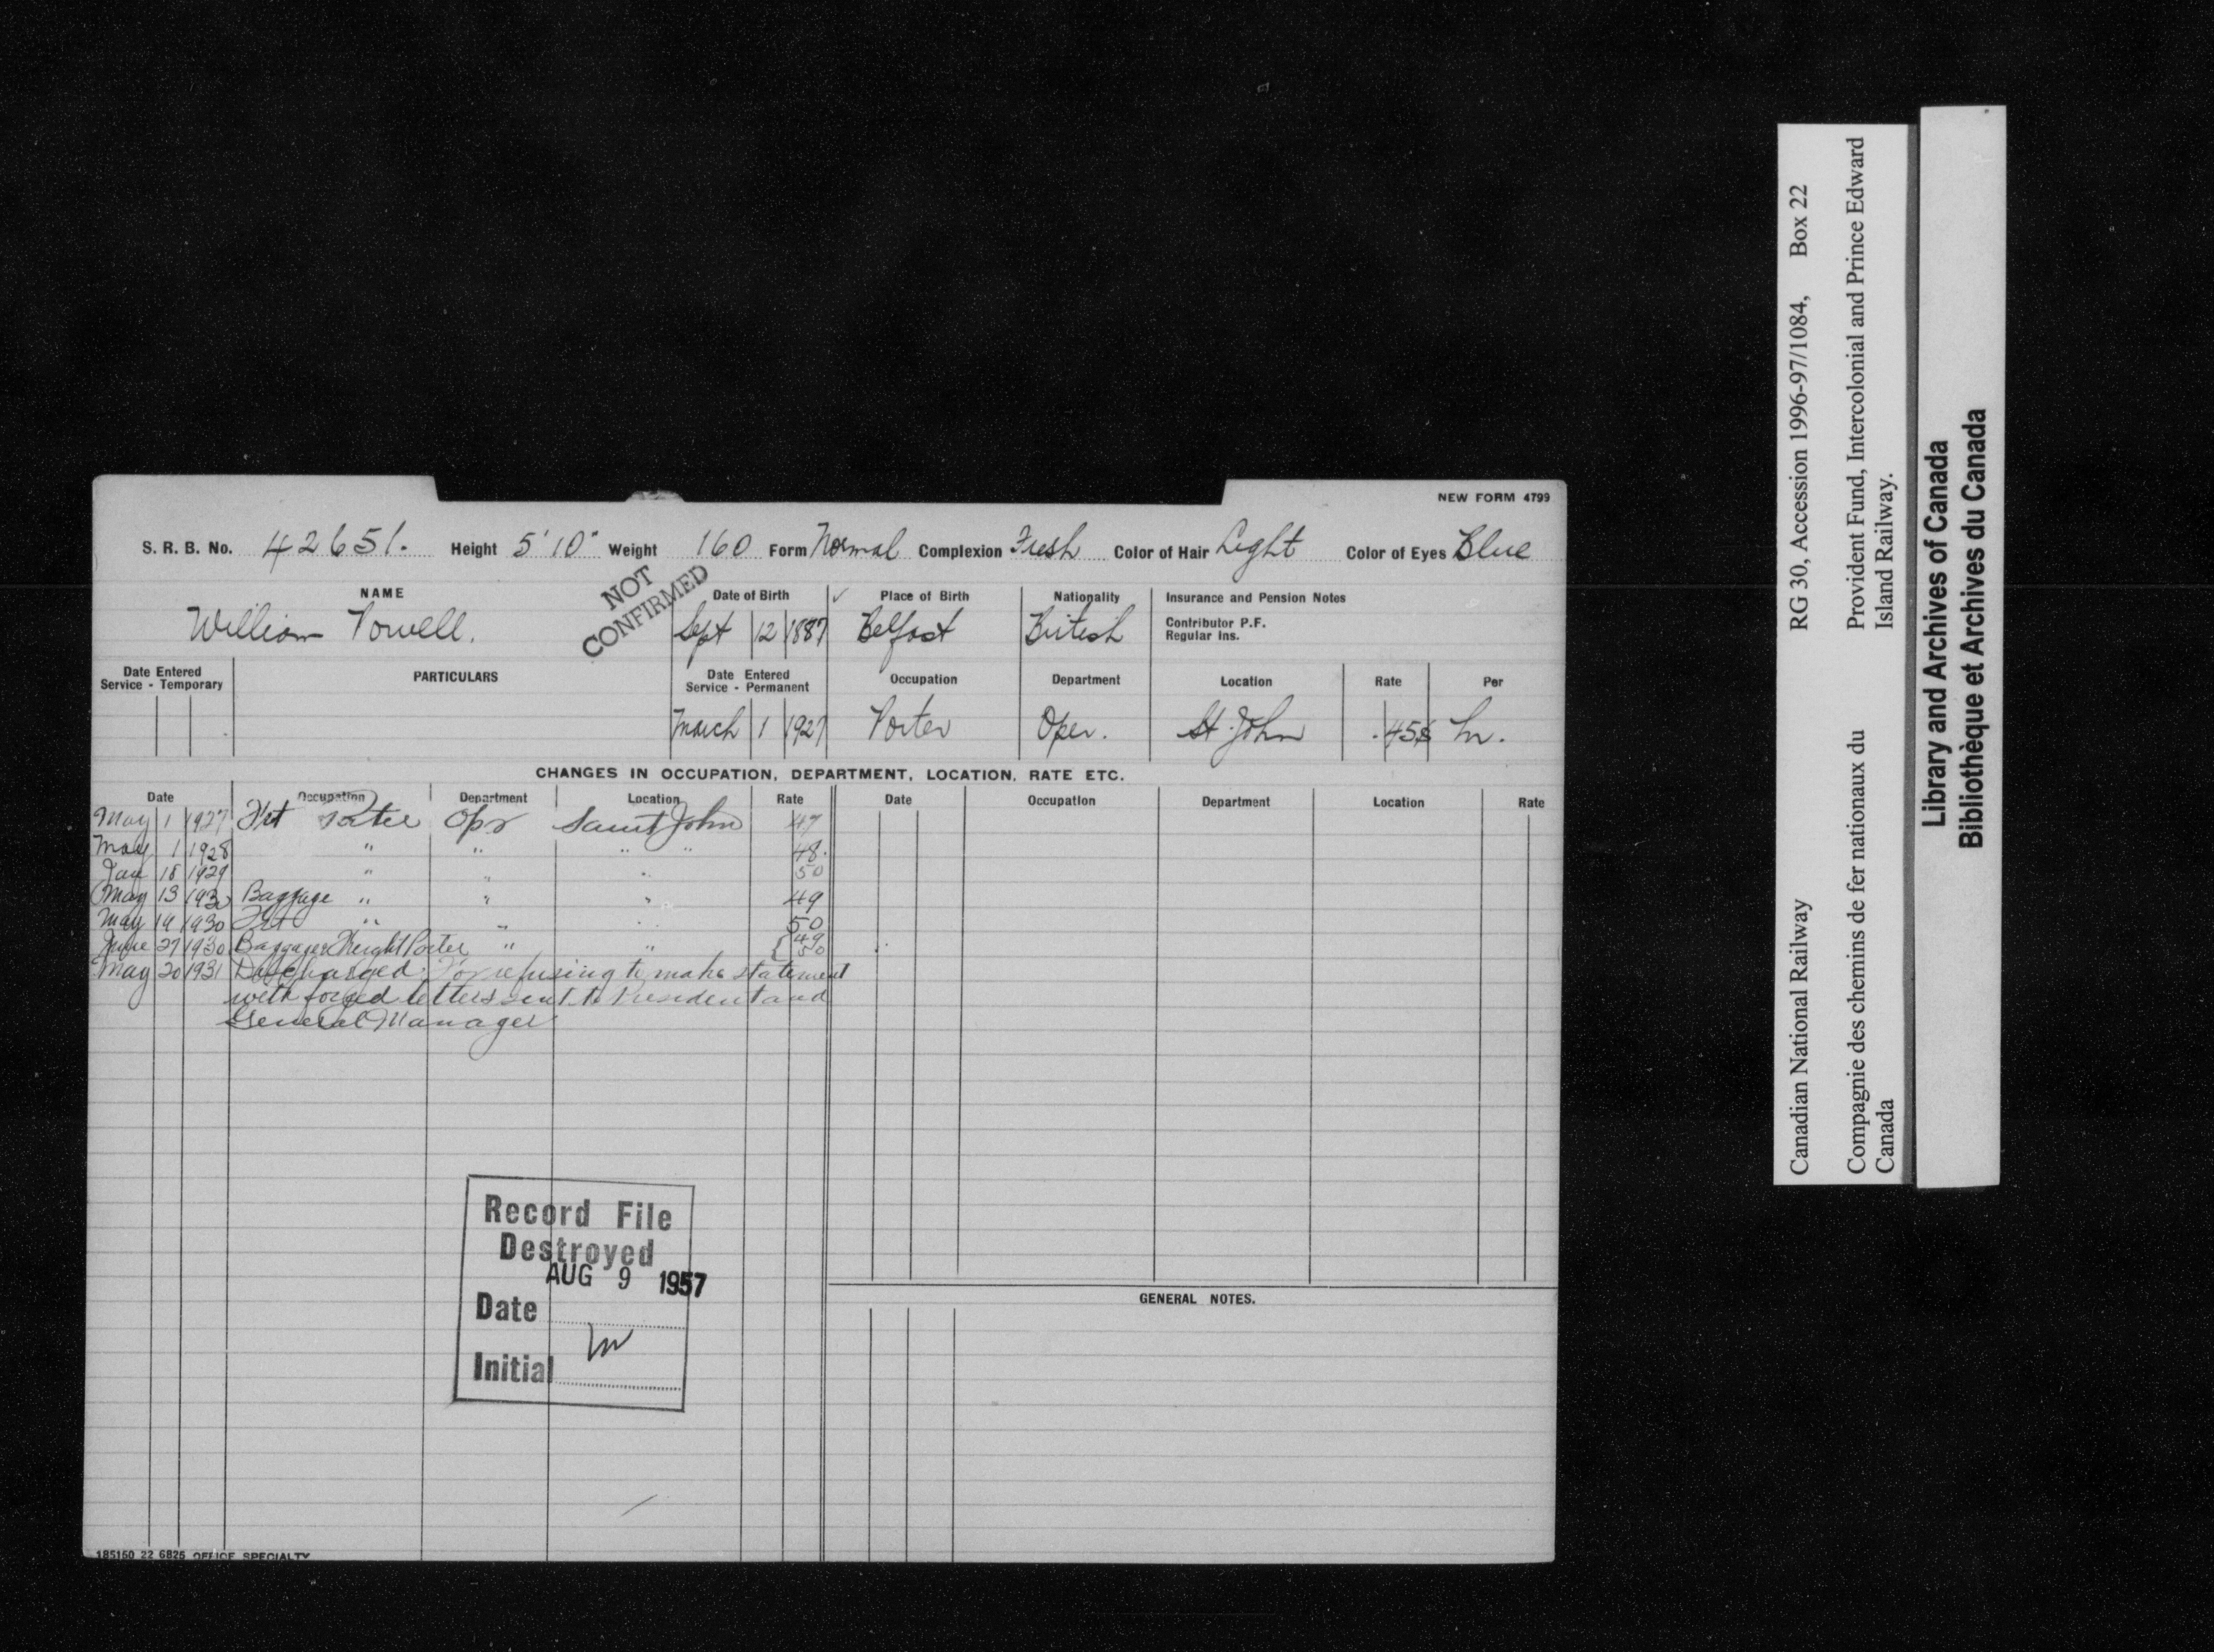 NEW FORM 4799
S. R. B. No. 42651. Height 5'10" Weight 160 Form Normal Complexion Fresh Color of Hair Light Color of Eyes Blue
NAME Date of Birth Place of Birth Nationality Insurance and Pension Notes
NOT CONFIRMED
William Powell. Sept 12 1887 Belfast British Contributor P.F.
Regular Ins.
Date Entered Service - Temporary PARTICULARS Date Entered Service - Permanent Occupation Department Location Rate Per
March 1 1927 Porter Oper. St. John .45 hr.
CHANGES IN OCCUPATION, DEPARTMENT, LOCATION, RATE ETC.
Date Occupation Department Location Rate Date Occupation Department Location Rate
May 1 1927 Frt Porter Opr Saint John 47
May 1 1928 " " " " 48.
Jan 1929 " " " 50
May 13 1930 Baggage " " " 49
May 19 1930 Frt " " " 50
June 27 1930 Baggage & Freight Porter " " { 49 50
May 20 1931 Discharged. For refusing to make statement
with forged letters sent to President and
General Manager
Record File
Destroyed
AUG 9 1957
Date
Initial
GENERAL NOTES.
185160 22 6825 OFFICE SPECIALTY
Canadian National Railway RG 30, Accession 1996-97/1084, Box 22
Compagnie des chemins de fer nationaux du Canada Provident Fund, Intercolonial and Prince Edward Island Railway.
Library and Archives of Canada
Bibliothèque et Archives du Canada